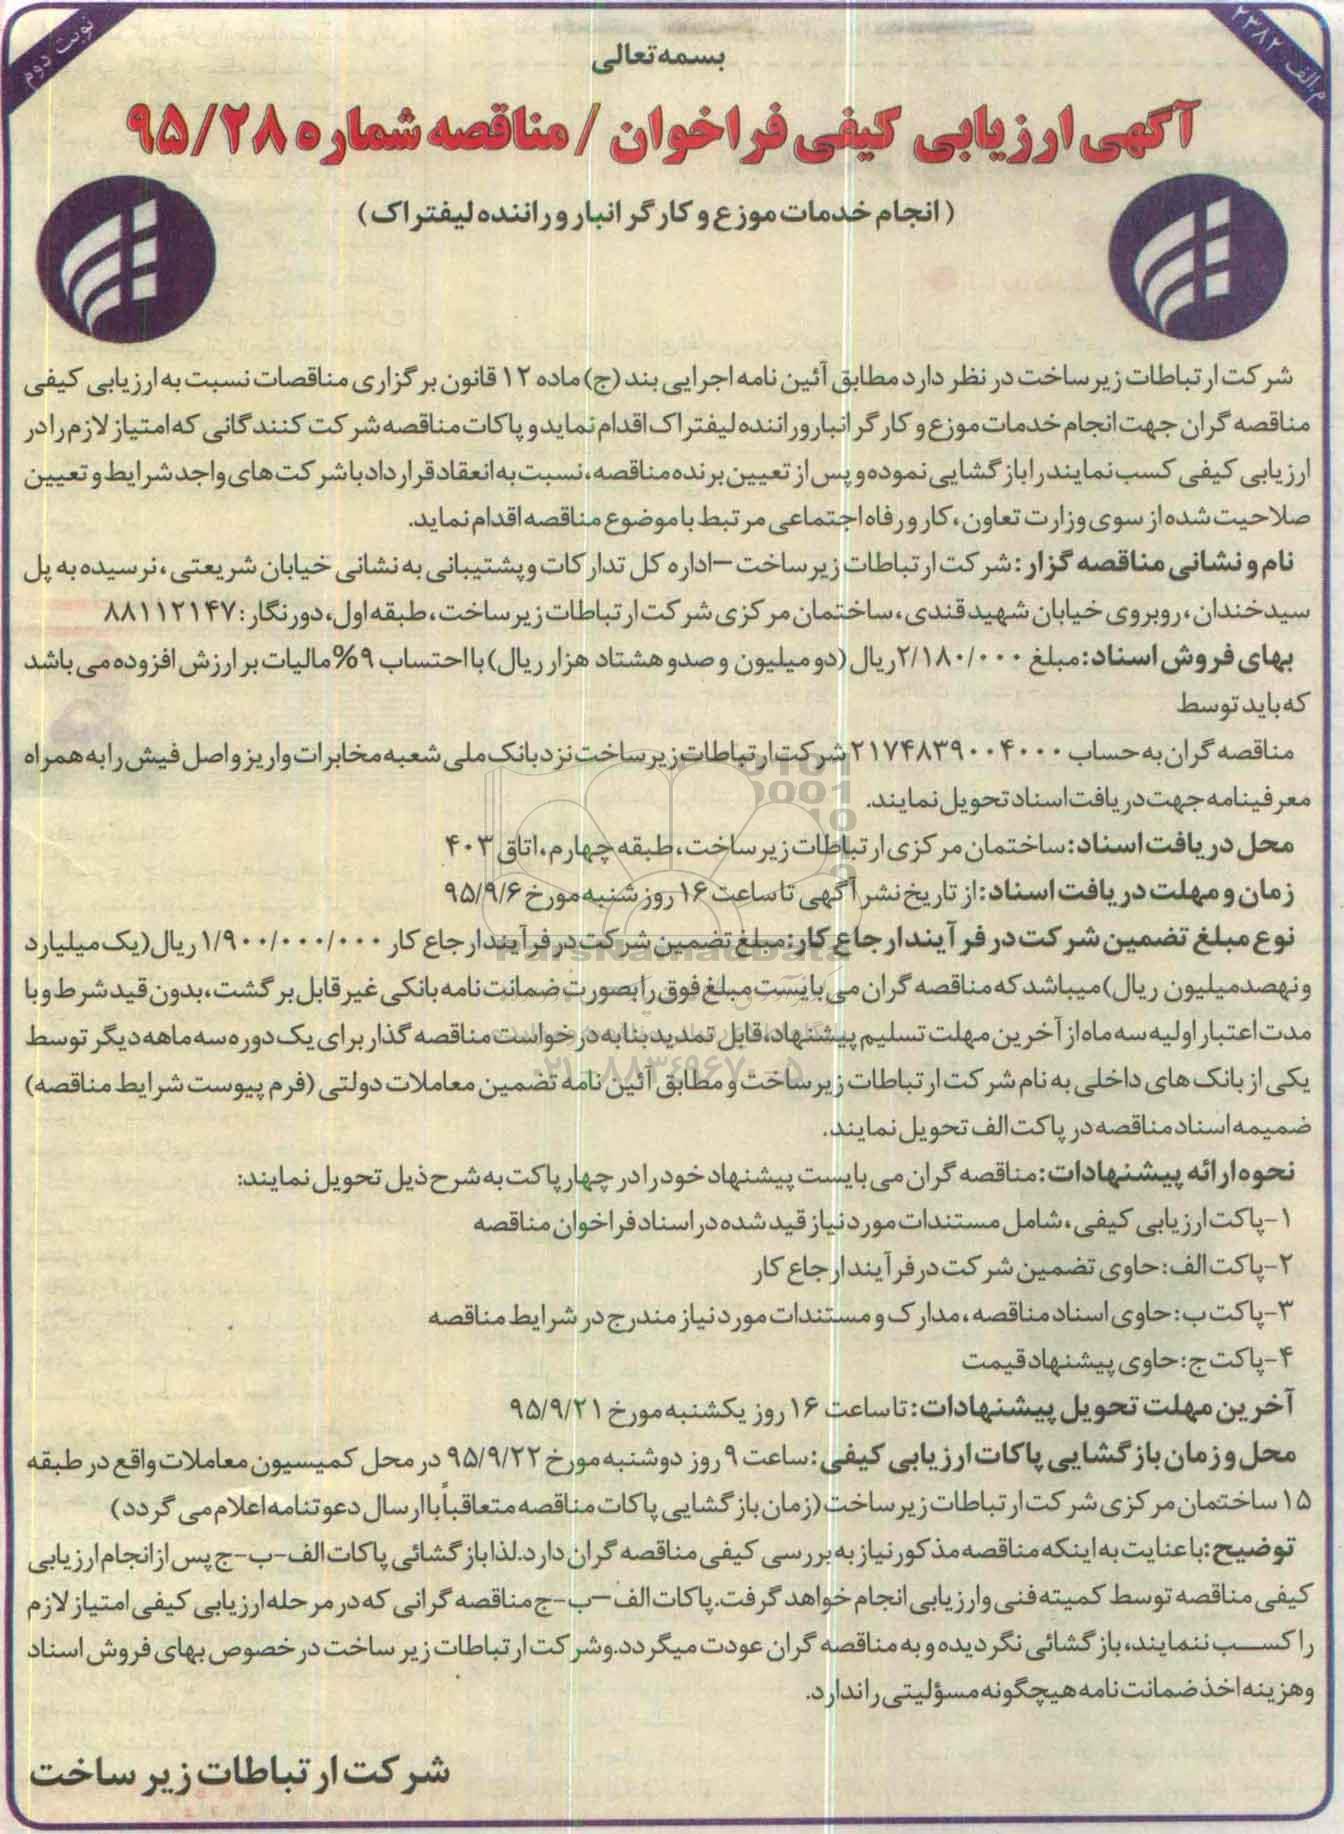 نوبت دوم
م.الف ۲۳۸۲
بسمه تعالی
آگهی ارزیابی کیفی فراخوان / مناقصه شماره ۹۵/۲۸
( انجام خدمات موزع و کارگر انبار و راننده لیفتراک )
شرکت ارتباطات زیرساخت در نظر دارد مطابق آئین نامه اجرایی بند (ج) ماده ۱۲ قانون برگزاری مناقصات نسبت به ارزیابی کیفی
مناقصه گران جهت انجام خدمات موزع و کارگر انبار و راننده لیفتراک اقدام نماید و پاکات مناقصه شرکت کنندگانی که امتیاز لازم را در
ارزیابی کیفی کسب نمایند را بازگشایی نموده و پس از تعیین برنده مناقصه، نسبت به انعقاد قرارداد با شرکت های واجد شرایط و تعیین
صلاحیت شده از سوی وزارت تعاون، کار و رفاه اجتماعی مرتبط با موضوع مناقصه اقدام نماید.
نام و نشانی مناقصه گزار: شرکت ارتباطات زیرساخت –اداره کل تدارکات و پشتیبانی به نشانی خیابان شریعتی، نرسیده به پل
سیدخندان، روبروی خیابان شهید قندی، ساختمان مرکزی شرکت ارتباطات زیرساخت، طبقه اول، دورنگار: ۸۸۱۱۲۱۴۷
بهای فروش اسناد: مبلغ ۲/۱۸۰/۰۰۰ریال (دو میلیون و صدو هشتاد هزار ریال) با احتساب ۹% مالیات بر ارزش افزوده می باشد
که باید توسط
مناقصه گران به حساب ۲۱۷۴۸۳۹۰۰۴۰۰۰ شرکت ارتباطات زیرساخت نزد بانک ملی شعبه مخابرات واریز و اصل فیش را به همراه
معرفینامه جهت دریافت اسناد تحویل نمایند.
محل دریافت اسناد: ساختمان مرکزی ارتباطات زیرساخت، طبقه چهارم، اتاق ۴۰۳
زمان و مهلت دریافت اسناد: از تاریخ نشر آگهی تا ساعت ۱۶ روز شنبه مورخ ۹۵/۹/۶
نوع مبلغ تضمین شرکت در فرآیند ارجاع کار: مبلغ تضمین شرکت در فرآیند ارجاع کار ۱/۹۰۰/۰۰۰/۰۰۰ ریال (یک میلیارد
و نهصد میلیون ریال) میباشد که مناقصه گران می بایست مبلغ فوق را بصورت ضمانت نامه بانکی غیر قابل برگشت، بدون قید شرط و با
مدت اعتبار اولیه سه ماه از آخرین مهلت تسلیم پیشنهاد، قابل تمدید بنا به درخواست مناقصه گذار برای یک دوره سه ماهه دیگر توسط
یکی از بانک های داخلی به نام شرکت ارتباطات زیرساخت و مطابق آئین نامه تضمین معاملات دولتی (فرم پیوست شرایط مناقصه)
ضمیمه اسناد مناقصه در پاکت الف تحویل نمایند.
نحوه ارائه پیشنهادات: مناقصه گران می بایست پیشنهاد خود را در چهار پاکت به شرح ذیل تحویل نمایند:
۱-پاکت ارزیابی کیفی، شامل مستندات مورد نیاز قید شده در اسناد فراخوان مناقصه
۲-پاکت الف: حاوی تضمین شرکت در فرآیند ارجاع کار
۳-پاکت ب: حاوی اسناد مناقصه، مدارک و مستندات مورد نیاز مندرج در شرایط مناقصه
۴-پاکت ج: حاوی پیشنهاد قیمت
آخرین مهلت تحویل پیشنهادات: تا ساعت ۱۶ روز یکشنبه مورخ ۹۵/۹/۲۱
محل و زمان بازگشایی پاکات ارزیابی کیفی: ساعت ۹ روز دوشنبه مورخ ۹۵/۹/۲۲ در محل کمیسیون معاملات واقع در طبقه
۱۵ ساختمان مرکزی شرکت ارتباطات زیرساخت (زمان بازگشایی پاکات مناقصه متعاقباً با ارسال دعوتنامه اعلام می گردد)
توضیح: با عنایت به اینکه مناقصه مذکور نیاز به بررسی کیفی مناقصه گران دارد. لذا بازگشائی پاکات الف-ب-ج پس از انجام ارزیابی
کیفی مناقصه توسط کمیته فنی و ارزیابی انجام خواهد گرفت. پاکات الف –ب-ج مناقصه گرانی که در مرحله ارزیابی کیفی امتیاز لازم
را کسب ننمایند، بازگشائی نگردیده و به مناقصه گران عودت میگردد. و شرکت ارتباطات زیرساخت در خصوص بهای فروش اسناد
و هزینه اخذ ضمانت نامه هیچگونه مسؤلیتی را ندارد.
شرکت ارتباطات زیر ساخت